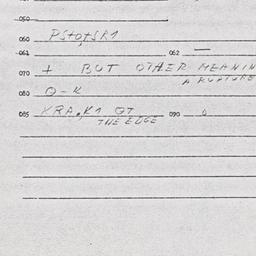 050
060 PS+O,+SK1
061 062 —
070 + BUT OTHER MEANIN
A RUPTURE
080 O-K
085 KRA,K1 OT 090 0
THE EDGE